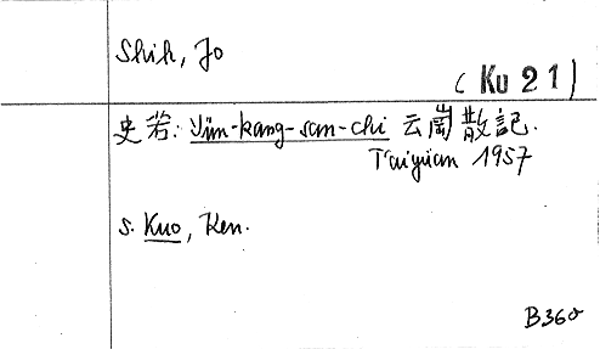 Shih, Jo
(Ku 21)
史若: Yün-kang-san-chi 云崗散記.
T'aiyüan 1957
s. Kuo, Ken.